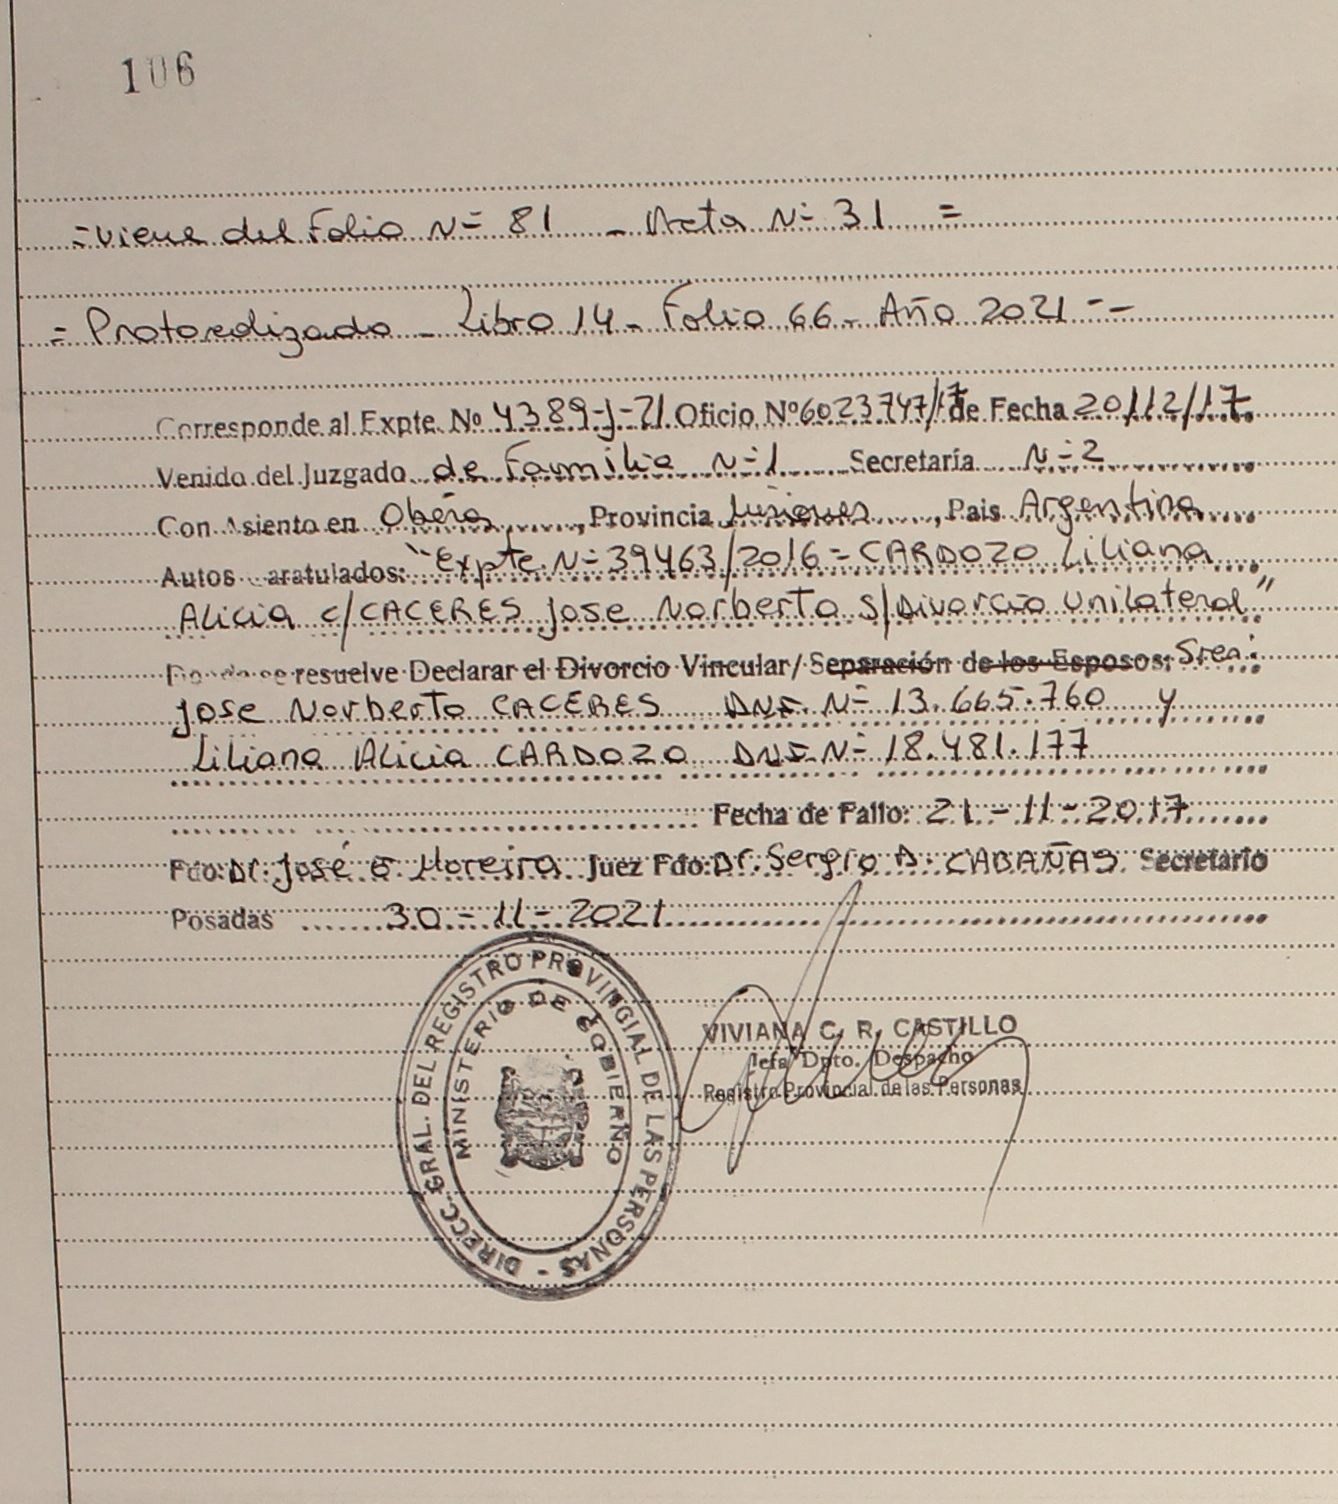 106
= Viene del Folio Nº 81 - Acta Nº 31 =
= Protocolizado - Libro 14 - Folio 66 - Año 2021 - -
Corresponde al Expte. Nº 4389-J-21 Oficio Nº 6023747/17 de Fecha 20/12/17.
Venido del Juzgado de Familia Nº 1 Secretaría Nº 2
Con Asiento en Oberá, Provincia Misiones, Pais Argentina
Autos caratulados: "Expte. Nº 39463/2016 - CARDOZO Liliana
Alicia c/ CACERES Jose Norberto S/Divorcio Unilateral"
Donde se resuelve Declarar el Divorcio Vincular/ Separación de los Esposos:
Jose Norberto CACERES DNI. Nº 13.665.760 y
Liliana Alicia CARDOZO DNI Nº 18.481.177
Fecha de Fallo: 21-11-2017
Fdo: Dr. José G. Moreira Juez Fdo: Dr. Sergio A. CABAÑAS Secretario
Posadas 30-11-2021
DIRECC. GRAL. DEL REGISTRO PROVINCIAL DE LAS PERSONAS -
MINISTERIO DE GOBIERNO
VIVIANA C. R. CASTILLO
Jefa Dpto. Despacho
Registro Provincial de las Personas